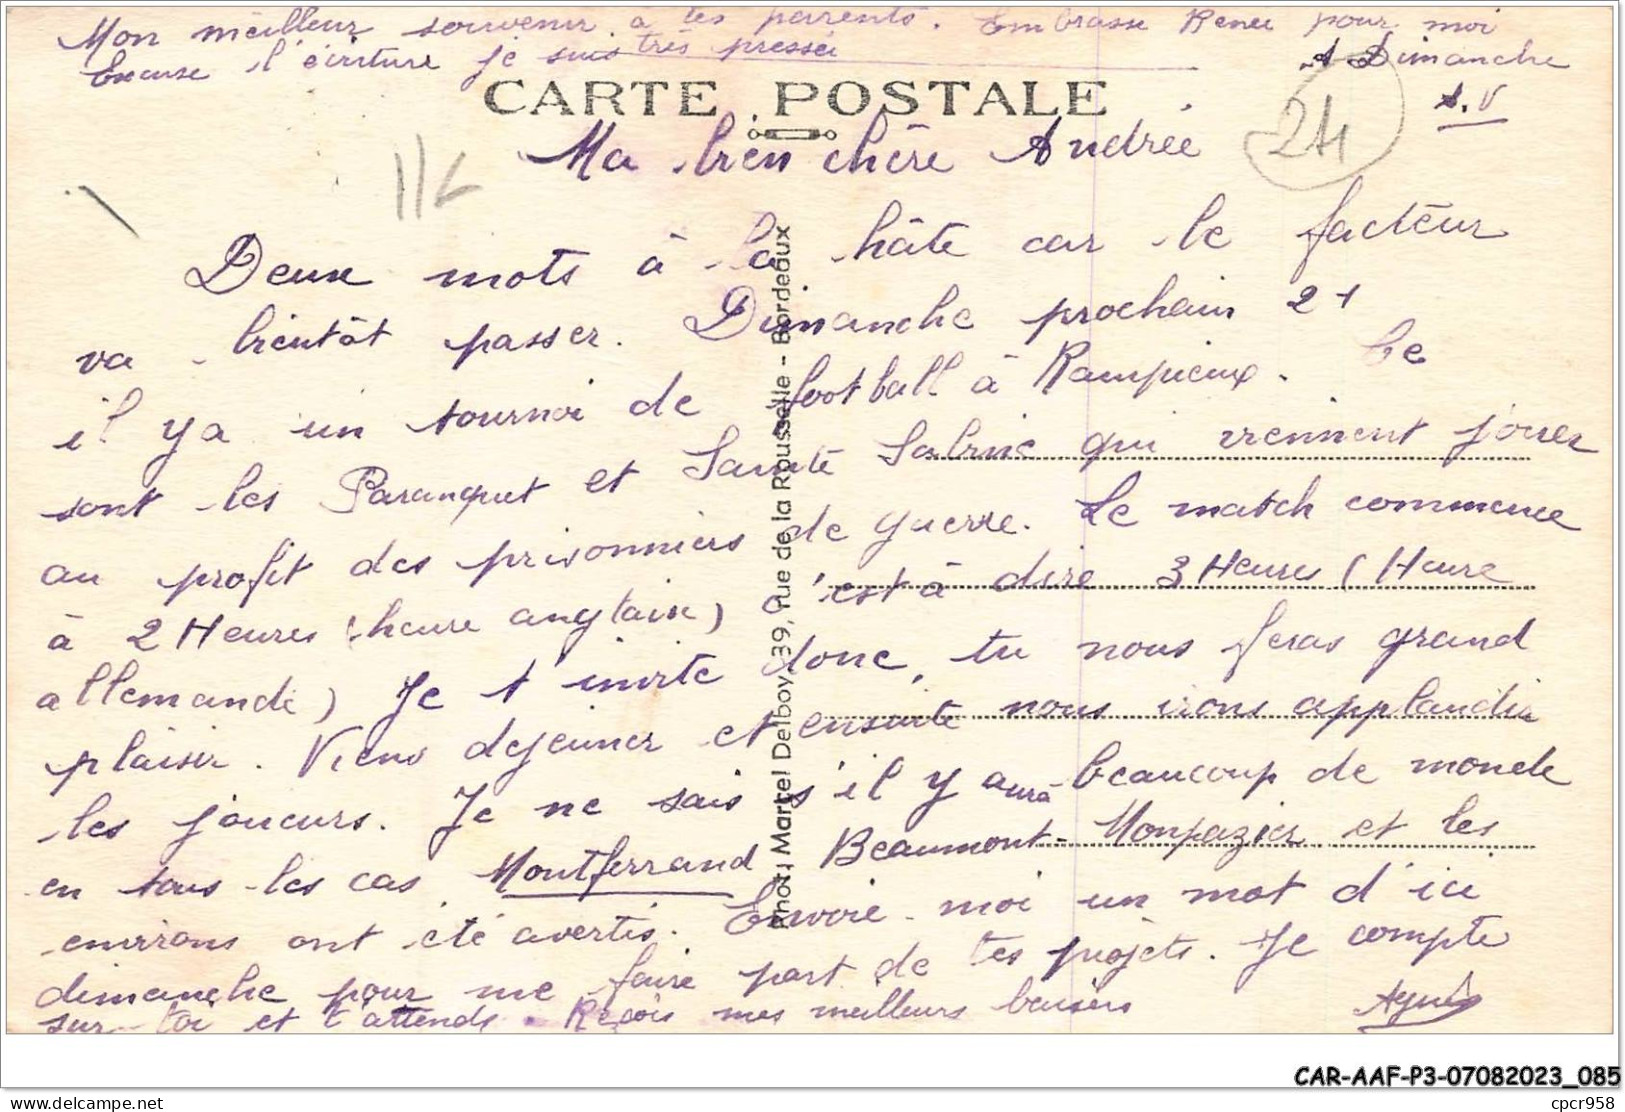 Mon meilleur souvenir à tes parents. Embrasse Renée pour moi
Excuse l'écriture je suis très pressée
A Dimanche
A.V
CARTE POSTALE
24
Ma bien chère Andrée
Deux mots à la hâte car le facteur
va bientôt passer. Dimanche prochain 21
il y a un tournoi de football à Rampieux. Ce
sont les Paranquet et Sainte Sabine qui viennent jouer
au profit des prisonniers de guerre. Le match commence
à 2 Heures (heure anglaise) c'est à dire 3 Heures (Heure
allemande) Je t'invite donc, tu nous feras grand
plaisir. Viens dejeuner et ensuite nous irons applaudir
les joueurs. Je ne sais s'il y aura beaucoup de monde
en tous les cas Montferrand Beaumont - Monpazier et les
environs ont été avertis. Envoie-moi un mot d'ici
dimanche pour me faire part de tes projets. Je compte
sur toi et t'attends. Reçois mes meilleurs baisers
Agnès
Phot. Marcel Delboy, 39, rue de la Rousselle - Bordeaux
CAR-AAF-P3-07082023_085
delcampe.net
cpcr958